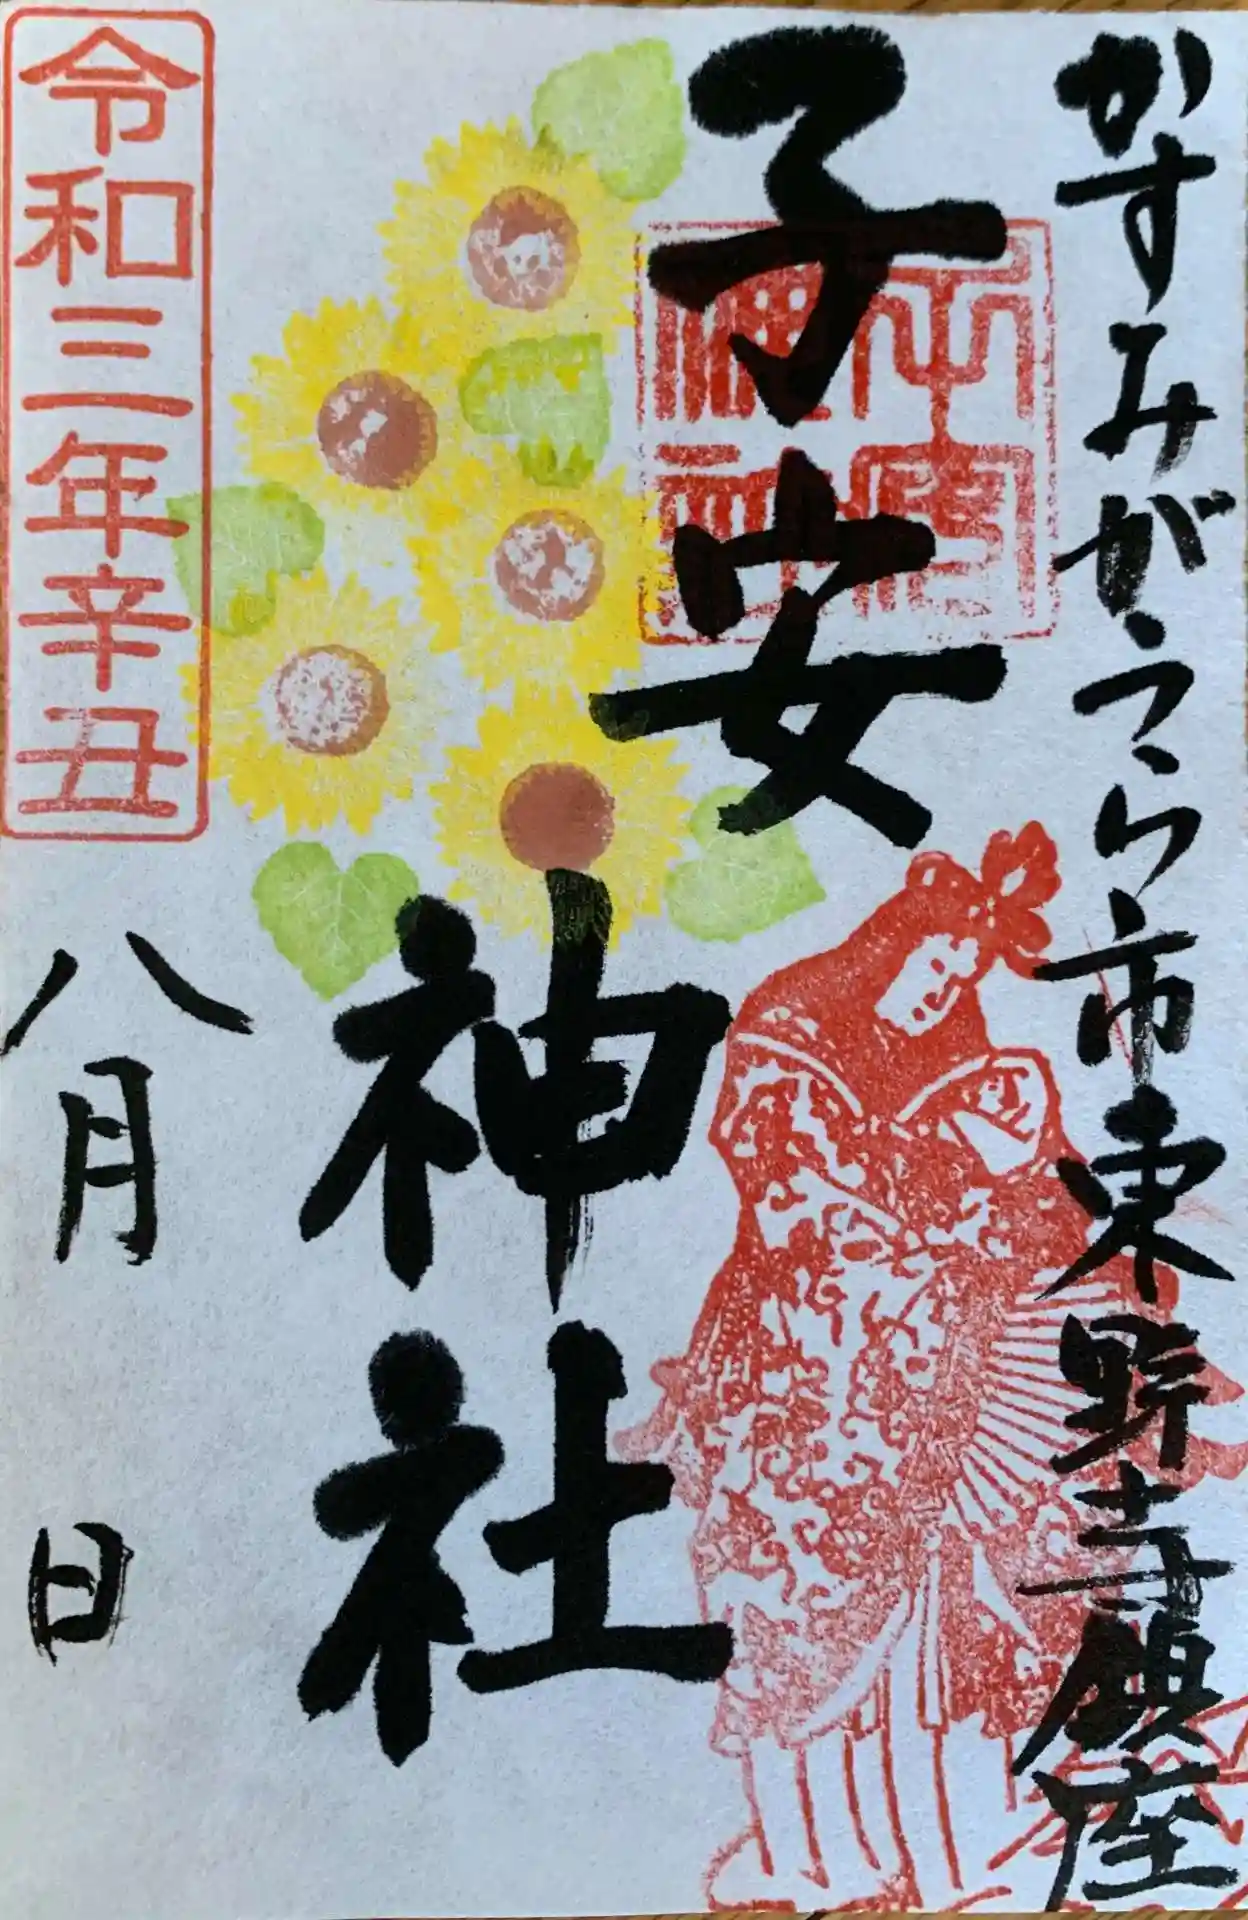 かすみがうら市東野寺鎮座
子安
神社
令和三年辛丑
八月 日